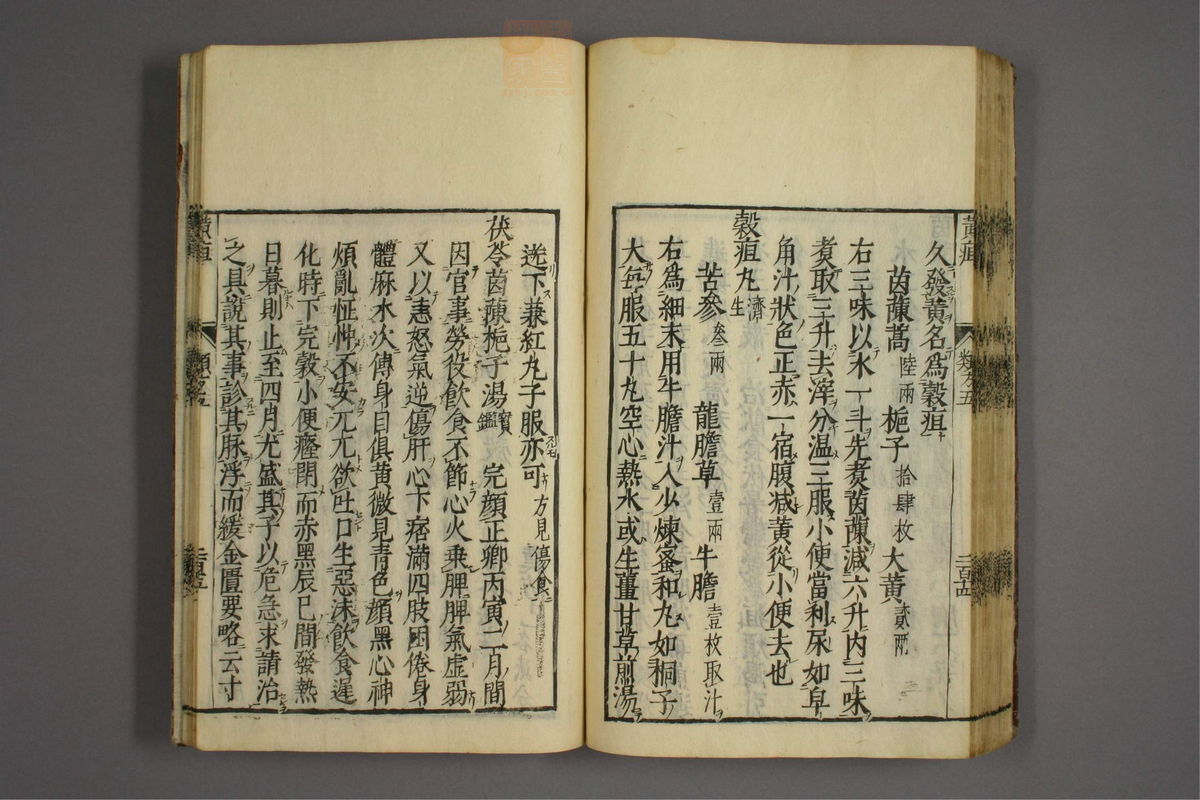 久發黃名爲穀疸
茵蔯蒿陸兩 梔子拾肆枚 大黃貳兩
右三味以水一斗先煑茵蔯減六升內二味
煑取三升去滓分温三服小便當利尿如皁
角汁狀色正赤一宿腹減黃從小便去也
穀疸丸濟生
苦參叁兩 龍膽草壹兩 牛膽壹枚取汁
右爲細末用牛膽汁入少煉蜜和丸如桐子
大每服五十丸空心熱水或生薑甘草煎湯
送下兼紅丸子服亦可方見傷食
茯苓茵蔯梔子湯寳鑑 完顏正卿丙寅二月間
因官事勞役飲食不節心火乗脾脾氣虚弱
又以恚怒氣逆傷肝心下痞滿四肢困倦身
體麻木次傳身目俱黄微見青色顏黑心神
煩亂怔忡不安兀兀欲吐口生惡沫飲食遲
化時下完穀小便癃閉而赤黑辰巳間發熱
日暮則止至四月尤盛其子以危急求請治
之具說其事診其脉浮而緩金匱要略云寸
黃疸